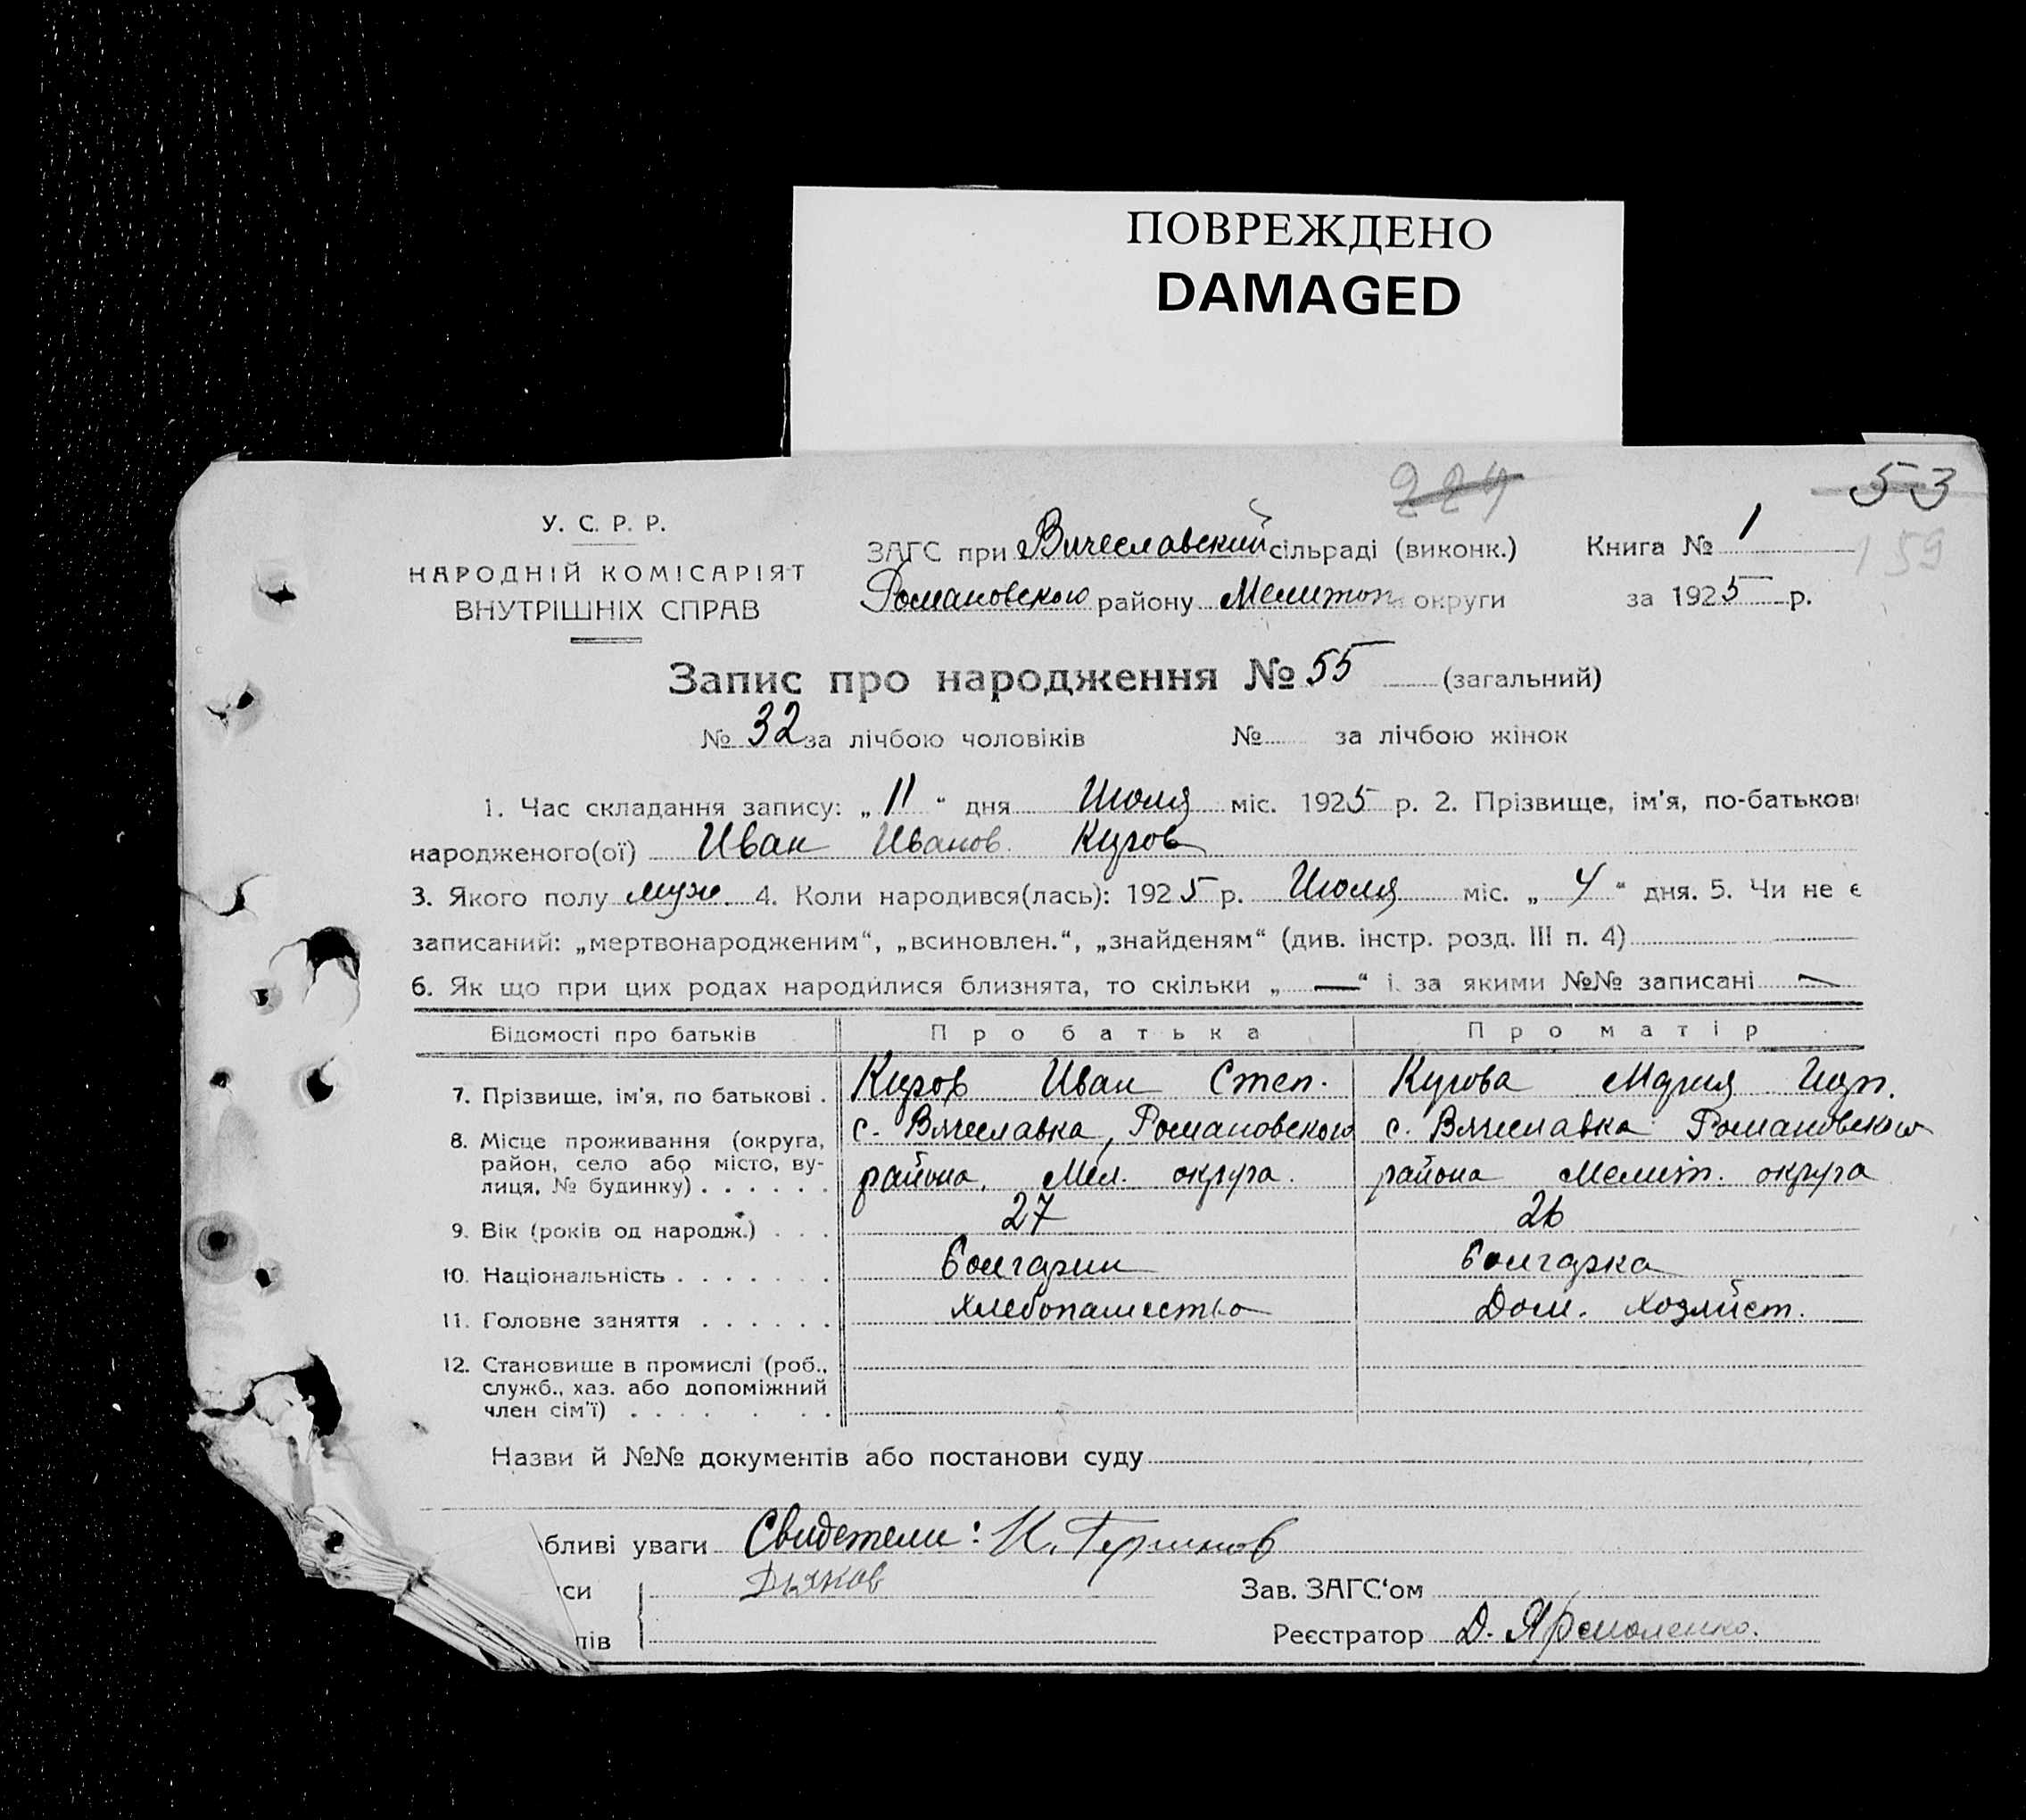 ПОВРЕЖДЕНО
DAMAGED
224
53
159
У. С. Р. Р.
НАРОДНІЙ КОМІСАРІЯТ
ВНУТРІШНІХ СПРАВ
ЗАГС при Вячеславский сільраді (виконк.) Книга № 1
Романовского району Мелитоп. округи за 1925 р.
Запис про народження № 55 (загальний)
№ 32 за лічбою чоловіків № за лічбою жінок
1. Час складання запису: „ 11 “ дня Июля міс. 1925 р. 2. Прізвище, ім'я, по-батькові
народженого(ої) Иван Иванов. Куров
3. Якого полу муж. 4. Коли народився(лась): 1925 р. Июля міс. „ 4 “ дня. 5. Чи не є
записаний: „мертвонародженим“, „всиновлен.“, „знайденям“ (див. інстр. розд. III п. 4)
6. Як що при цих родах народилися близнята, то скільки „ — “ і за якими №№ записані —
Відомості про батьків Про батька Про матір
7. Прізвище, ім'я, по батькові . Куров Иван Степ. Курова Мария
8. Місце проживання (округа, район, село або місто, ву-
лиця, № будинку) . . . . . . с. Вячеславка, Романовского района, Мел. округа. с. Вячеславка Романовского района Мелит. округа
9. Вік (років од народж.) . . . 27 26
10. Національність . . . . . . . болгарин болгарка
11. Головне заняття . . . . . . хлебопашество Дом. хозяйст.
12. Становище в промислі (роб.,
служб., хаз. або допоміжний
член сім'ї) . . . . . . .
Назви й №№ документів або постанови суду
бливі уваги Свидетели: И.
си Дьяков Зав. ЗАГС'ом
пів Реєстратор Д. Ярмоленко.